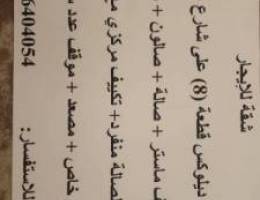 شقة للإيجار
ديلوكس قطعة (8) على شارع
ماستر + صالة + صالون +
لصالة منفرد+ تكييف مركزي
خاص + مصعد + موقف عدد
للاستفسار:
6404054